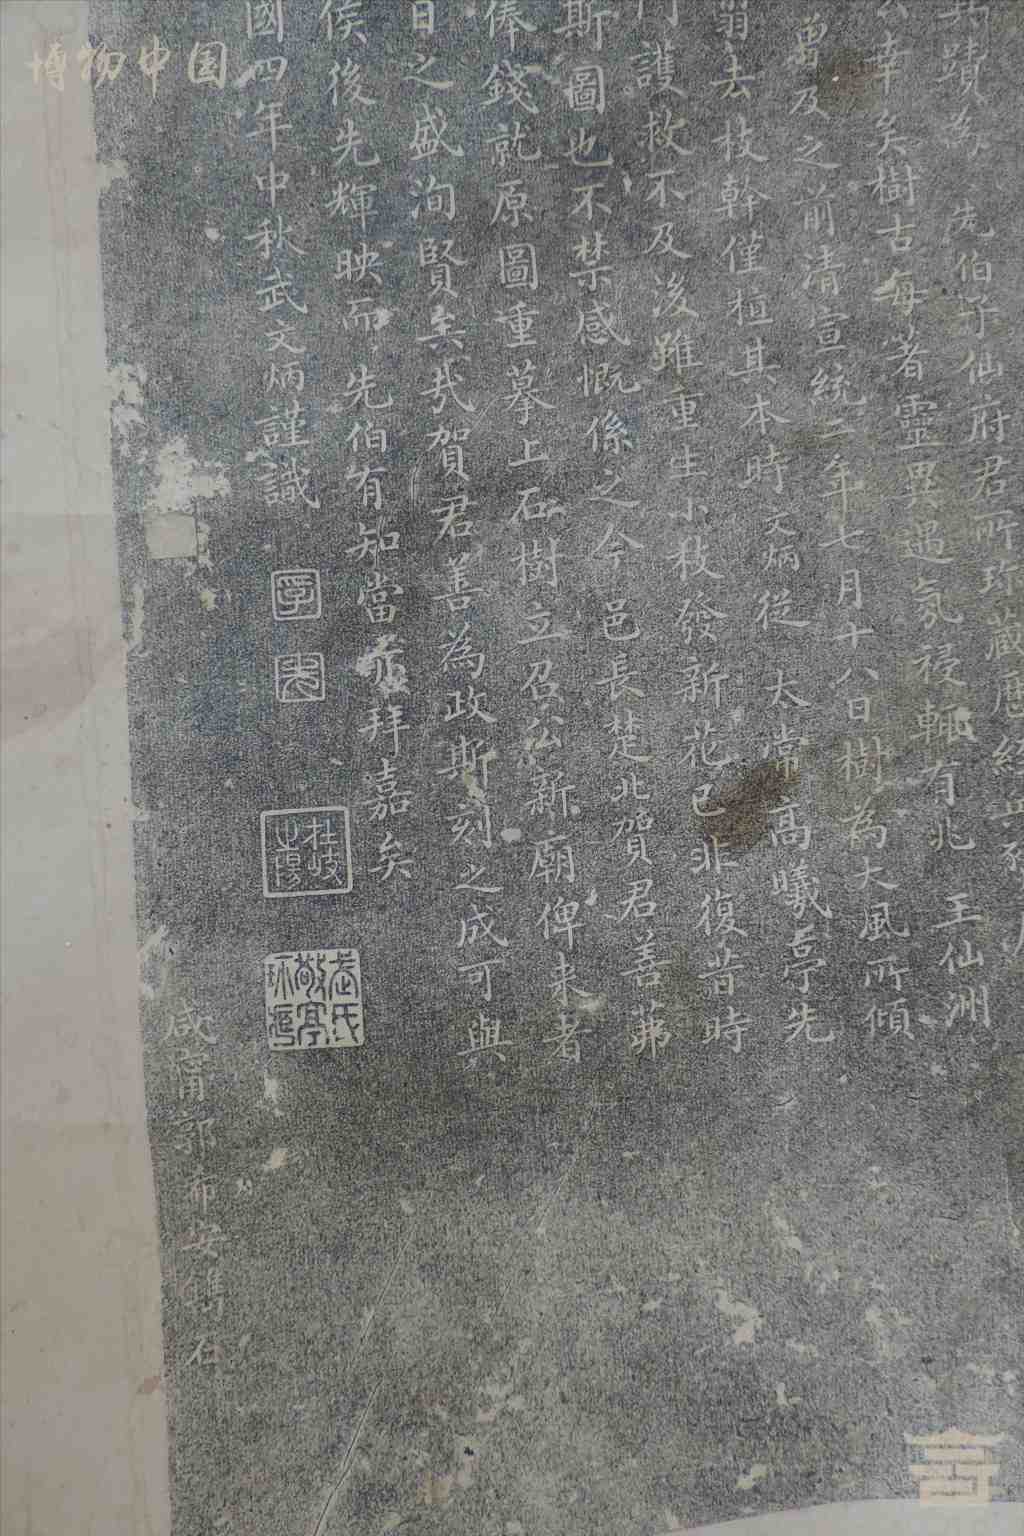 博物中国
蹟為先伯子仙府君所珍藏歷經兵
公幸矣樹古每著靈異遇氛祲輒有兆王仙洲
曾及之前清宣統二年七月十八日樹為大風所傾
翁去枝幹僅植其本時文炳從太常高曦亭先
門護救不及後雖重生小枚發新花已非復昔時
斯圖也不禁感慨係之今邑長楚北賀君善茀
俸錢就原圖重摹上石樹立召公新廟俾来者
日之盛洵賢矣哉賀君善為政斯刻之成可與
侯後先輝映而先伯有知當亦拜嘉矣
國四年中秋武文炳謹識
杜岐之陽
武氏敬亭
咸甯郭希安鐫石